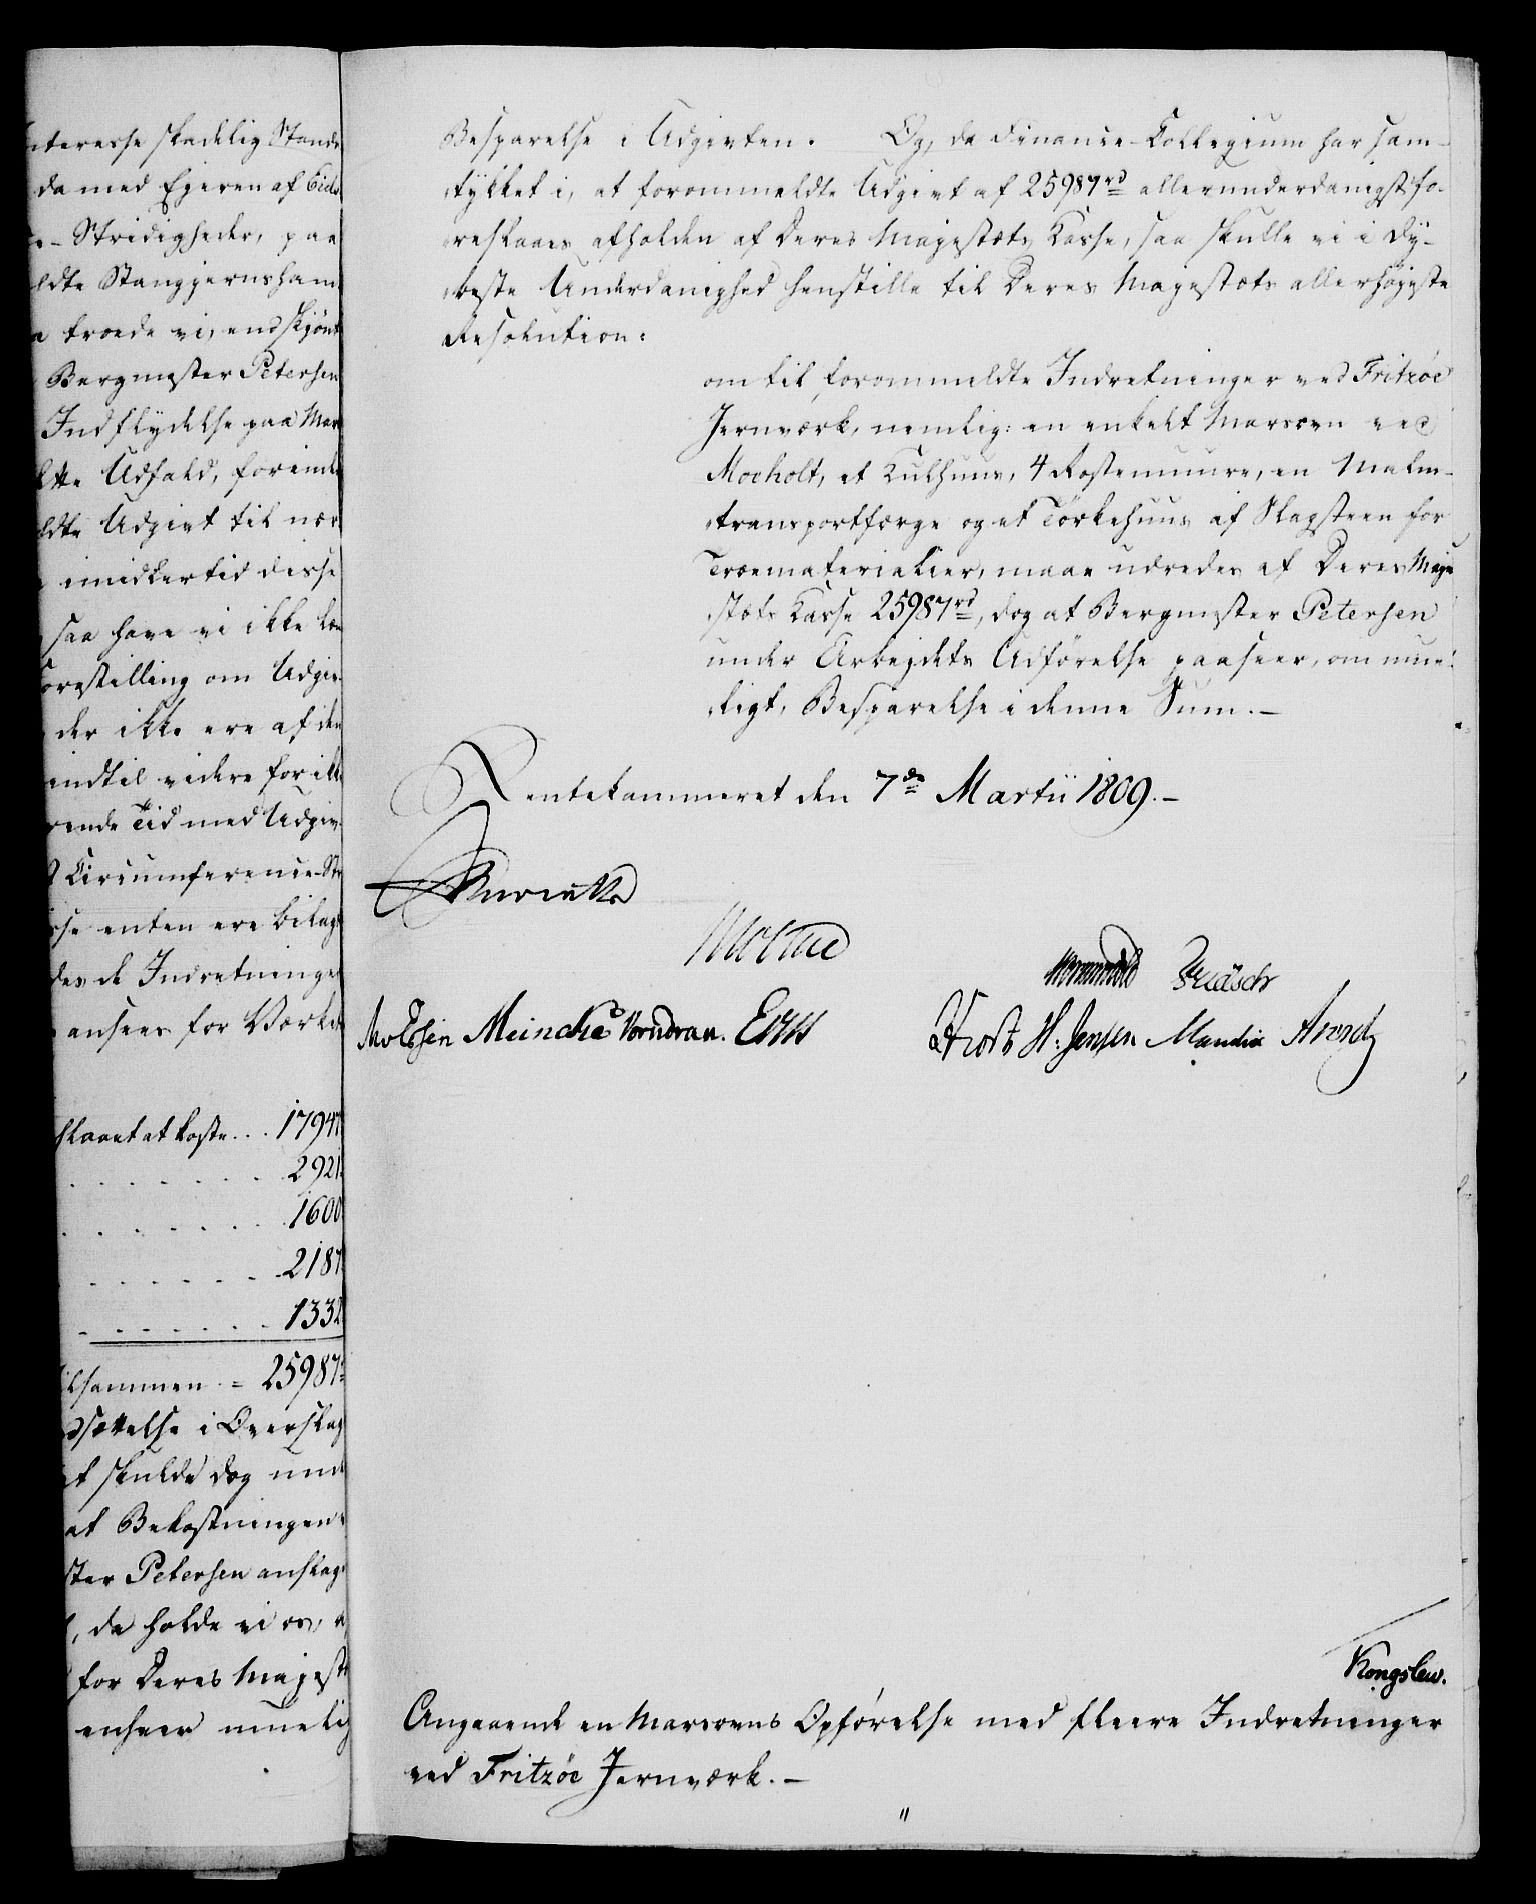 nteresse skadelig Stands
da med Ejeren af Eids
e-Stridigheder, paa
ldte Stangjernsham
a troede vi, endskjønt
Bergmester Petersen
Indflydelse paa Mar
tte Udfald, foreinde
ldte Udgivt til nær
imidlertid disse
saa have vi ikke
orestilling om Udgiv
der ikke ere af den
indtil videre for ikke
rende Tid med Udgiv
Circumference-Str
se enten ere bilag
des de Indretninge
ansees for Værke
slaaet at koste... 17947
2921
1600
2187
1332
lsammen = 25987
dsættelse i Overslag
et skulde dog und
at Bekostningen
ster Petersen anslag
, da holde vi os,
for Deres Majest
enhver muelig
Besparelse i Udgivten. Og, da Finance-Collegium har sam-
tykket i, at forommeldte Udgivt af 25987 rd allerunderdanigst fo-
reslaaes afholden af Deres Majestæts Kasse, saa skulle vi i dy-
beste Underdanighed henstille til Deres Majestæts allerhøjeste
Resolution:
om til forommeldte Indretninger ved Fritzøe
Jernværk, nemlig: en enkelt Marsovn ved
Mocholt, et Kulhuus, 4 Rostemuure, en Malm-
transportfærge og et Tørkehuus af Slagsteen for
Træematerialier, maae udredes af Deres Maje
stæts Kasse 25987 rd, dog at Bergmester Petersen
under Arbejdets Udførelse paaseer, om mue-
ligt, Besparelse i denne Sum.-
Rentekammeret den 7de Martii 1809.-
Molthe
Wormskiold Knäsch
Meincke Vorndran.
H: Jensen Mandix Arendz
Kongslew.
Angaaende en Marsovns Opførelse med fleere Indretninger
ved Fritzøe Jernværk.-
"